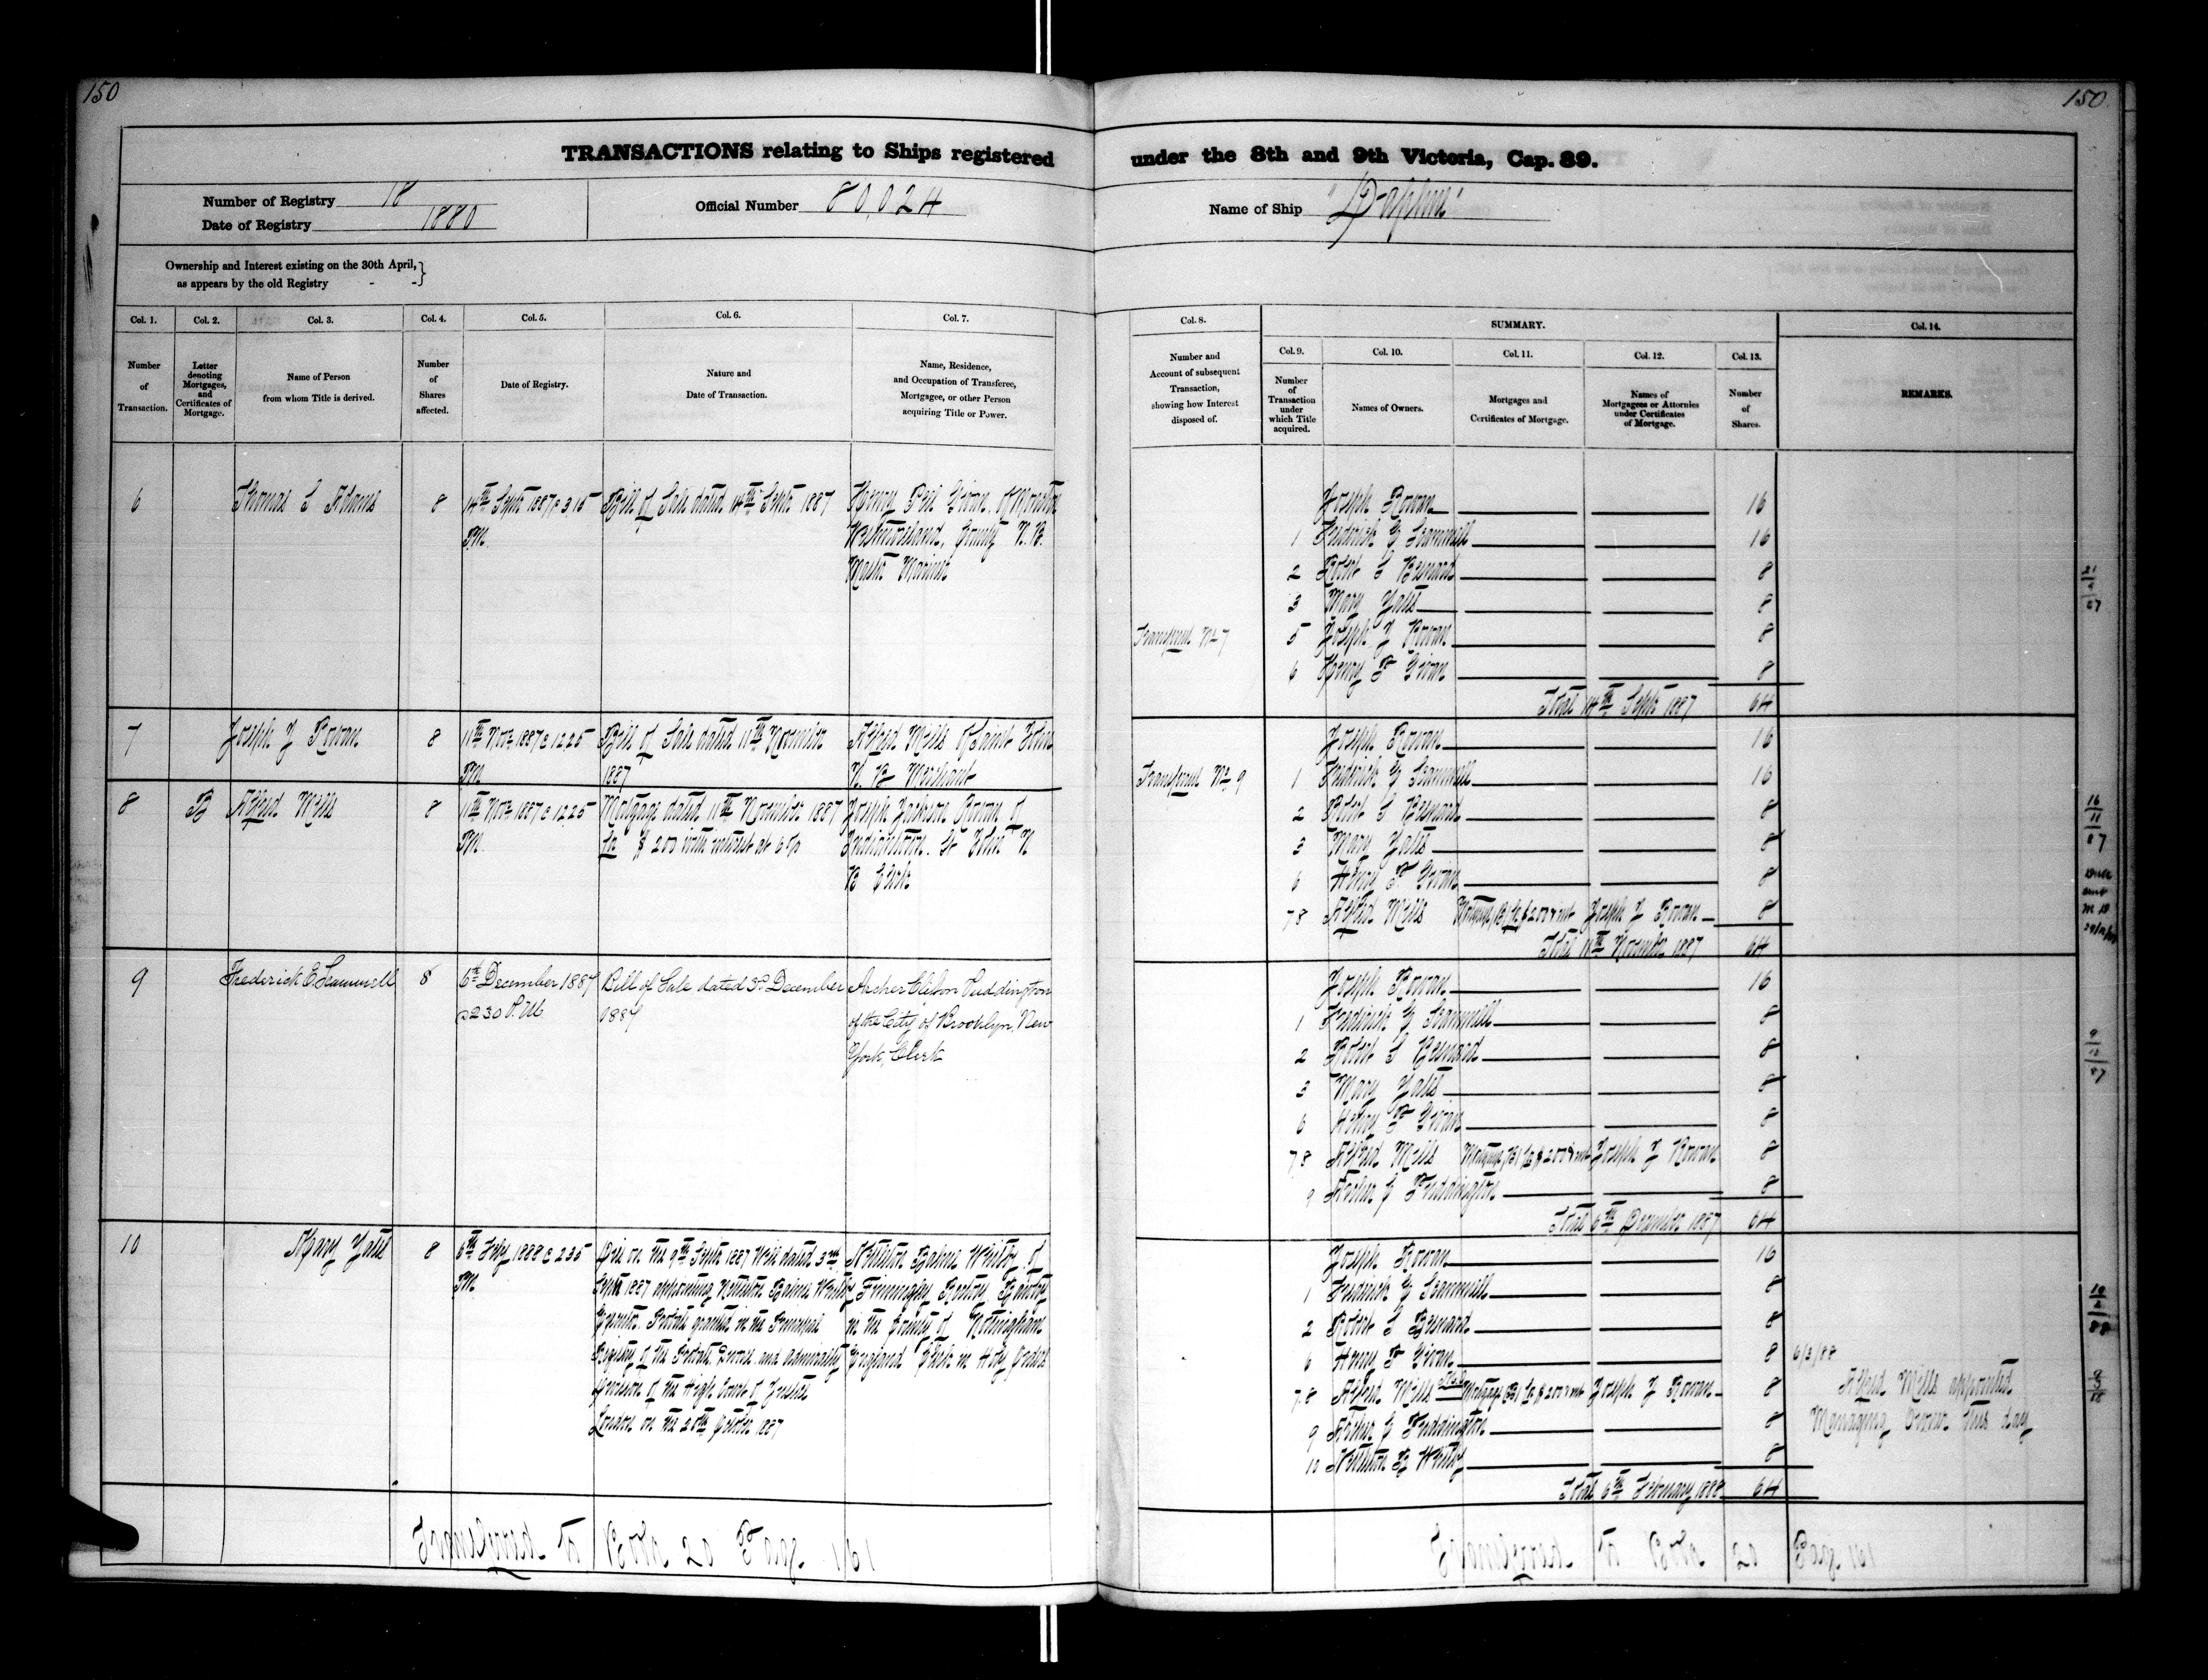 150
150
TRANSACTIONS relating to Ships registered under the 8th and 9th Victoria, Cap. 89.
Number of Registry 18
Date of Registry 1880
Official Number 80,024
Name of Ship "Daphne"
Ownership and Interest existing on the 30th April,
as appears by the old Registry - -
Col. 1.
Number
of
Transaction.
Col. 2.
Letter
denoting
Mortgages,
and
Certificates of
Mortgage.
Col. 3.
Name of Person
from whom Title is derived.
Col. 4.
Number
of
Shares
affected.
Col. 5.
Date of Registry.
Col. 6.
Nature and
Date of Transaction.
Col. 7.
Name, Residence,
and Occupation of Transferee,
Mortgagee, or other Person
acquiring Title or Power.
Col. 8.
Number and
Account of subsequent
Transaction,
showing how Interest
disposed of.
SUMMARY.
Col. 9.
Number
of
Transaction
under
which Title
acquired.
Col. 10.
Names of Owners.
Col. 11.
Mortgages and
Certificates of Mortgage.
Col. 12.
Names of
Mortgagees or Attornies
under Certificates
of Mortgage.
Col. 13.
Number
of
Shares.
Col. 14.
REMARKS.
6 Thomas S Adams 8
14th Septr 1887 @ 3.15
P.M.
Bill of Sale dated 14th Septr 1887
Henry Givan of Moncton
Westmoreland, County N.B.
Master Mariner
Joseph Rowan 16
1 Frederick E Scammell 16
2 Robert S Besnard 8
3 Mary Yates 8
Transferred No 7 5 Joseph J Rowan 8
6 Henry P Givan 8
Total 14th Septr 1887 64
7 Joseph J Rowan 8
11th Novr 1887 @ 12.25
P.M.
Bill of Sale dated 11th November
1887
Alfred Mills of Saint John
N. B. Merchant
8 B Alfred Mills 8
11th Novr 1887 @ 12.25
P.M.
Mortgage dated 11th November 1887
for $ 200 with interest at 6 %
Joseph Jackson Rowan of
Indiantown. St John N
B Clerk
Joseph Rowan 16
Transferred No 9 1 Frederick E Scammell 16
2 Robert S Besnard 8
3 Mary Yates 8
6 Henry P Givan 8
7.8 Alfred Mills Mortgage (B) for $200 & int Joseph J Rowan 8
Total 11th November 1887 64
9 Frederick E. Scammell 8
6th December 1887
@ 2.30 P.M.
Bill of Sale dated 3d December
1887
Archer Puddington
of the City of Brooklyn, New
York, Clerk
Joseph Rowan 16
1 Frederick E Scammell 8
2 Robert S Besnard 8
3 Mary Yates 8
6 Henry P Givan 8
7.8 Alfred Mills Mortgage (B) for $200 & int Joseph J Rowan 8
9 Archer C Puddington 8
Total 6th December 1887 64
10 Mary Yates 8
6th Feby 1888 @ 2.35
P.M.
Died on the 9th Septr 1887 Will dated 3rd
Septr 1887 appointing Whitby
Executor. Probate granted in the Principal
Registry of the Probate, Divorce and Admiralty
Division of the High Court of Justice
London on the 20th October 1887
Whitby of
Finningley Rectory, Bawtry
in the County of Nottingham
England Clerk in Holy Orders
Joseph Rowan 16
1 Frederick E Scammell 8
2 Robert S Besnard 8
6 Henry P Givan 8
7.8 Alfred Mills Mortgage (B) for $200 & int Joseph J Rowan 8
9 Archer C Puddington 8
10 Whitby 8
Total 6th February 1888 64
6/3/88
Alfred Mills appointed
Managing Owner this day
Transferred to Book 20 Page 161
Transferred to Book 20 Page 161